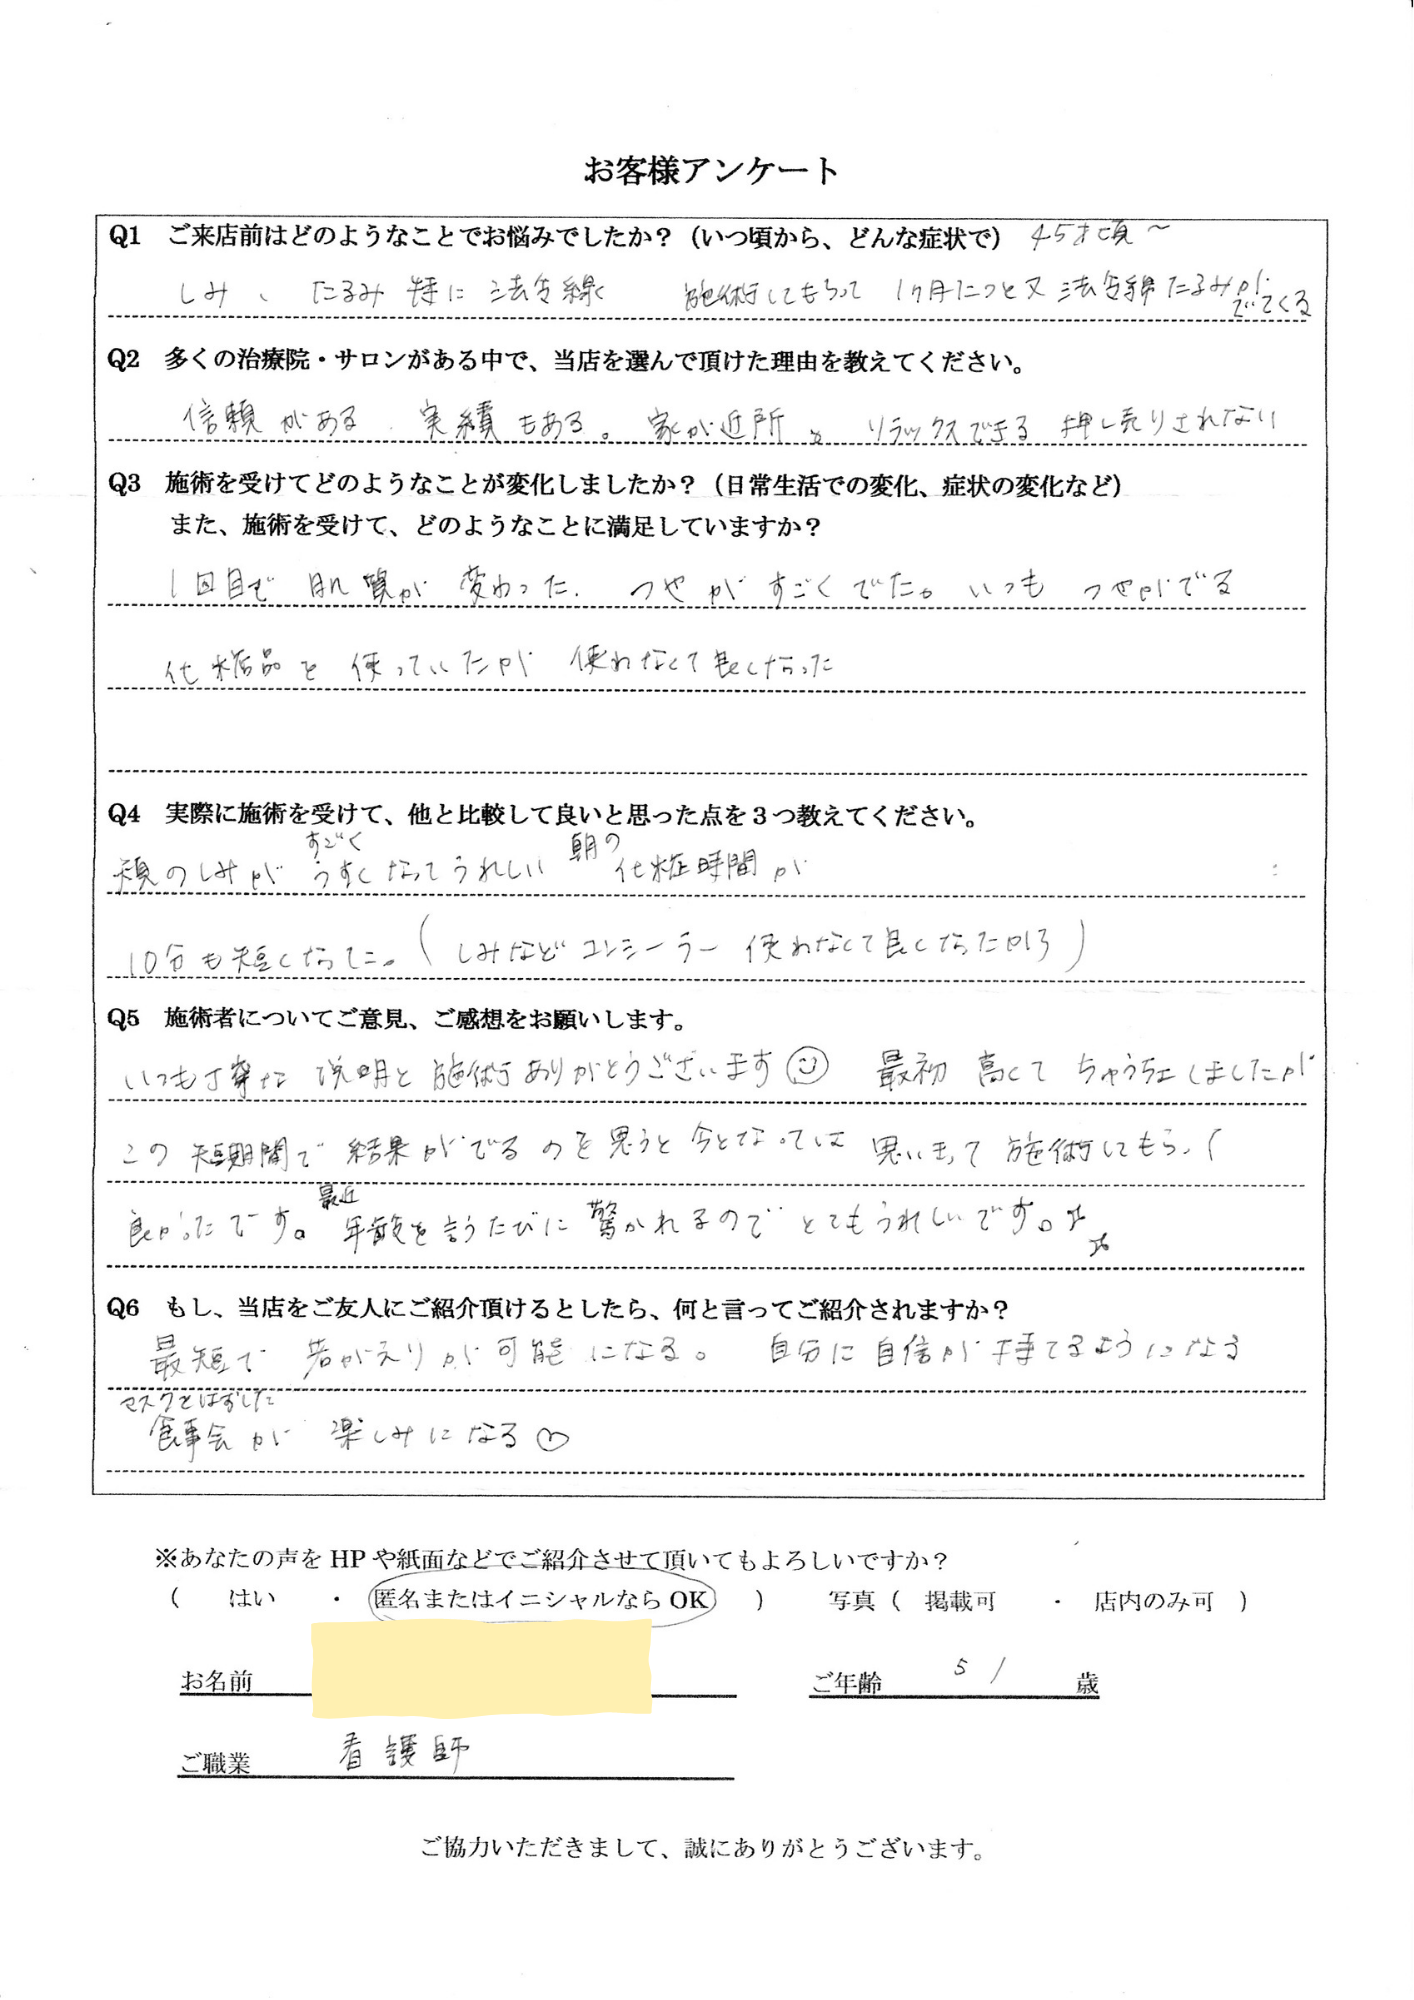 お客様アンケート
Q1 ご来店前はどのようなことでお悩みでしたか？（いつ頃から、どんな症状で） 45才頃～
しみ、たるみ 特に 法令線 施術してもらって 1ヶ月たつと又 法令線 たるみが
でてくる
Q2 多くの治療院・サロンがある中で、当店を選んで頂けた理由を教えてください。
信頼がある 実績もある。家が近所 リラックスできる 押し売りされない
Q3 施術を受けてどのようなことが変化しましたか？（日常生活での変化、症状の変化など）
また、施術を受けて、どのようなことに満足していますか？
1回目で 肌質が 変わった. つやが すごくでた。いつも つやがでる
化粧品を 使っていたが 使わなくて良くなった
Q4 実際に施術を受けて、他と比較して良いと思った点を３つ教えてください。
頬のしみが すごく うすくなってうれしい 朝の 化粧時間が
10分も短くなった。（しみなど コンシーラー 使わなくて良くなったから）
Q5 施術者についてご意見、ご感想をお願いします。
いつも丁寧な 説明と 施術ありがとうございます☺ 最初 高くて ちゅうちょしましたが
この 短期間で 結果がでるのを思うと 今となっては 思いきって 施術してもらい
良かったです。最近 年齢を言うたびに 驚かれるので とてもうれしいです。
Q6 もし、当店をご友人にご紹介頂けるとしたら、何と言ってご紹介されますか？
最短で 若がえりが 可能になる。 自分に自信が 持てるようになる
マスクをはずした
食事会が 楽しみになる♡
※あなたの声を HP や紙面などでご紹介させて頂いてもよろしいですか？
（ はい ・ 匿名またはイニシャルなら OK ） 写真（ 掲載可 ・ 店内のみ可 ）
お名前 ご年齢 51 歳
ご職業 看護師
ご協力いただきまして、誠にありがとうございます。